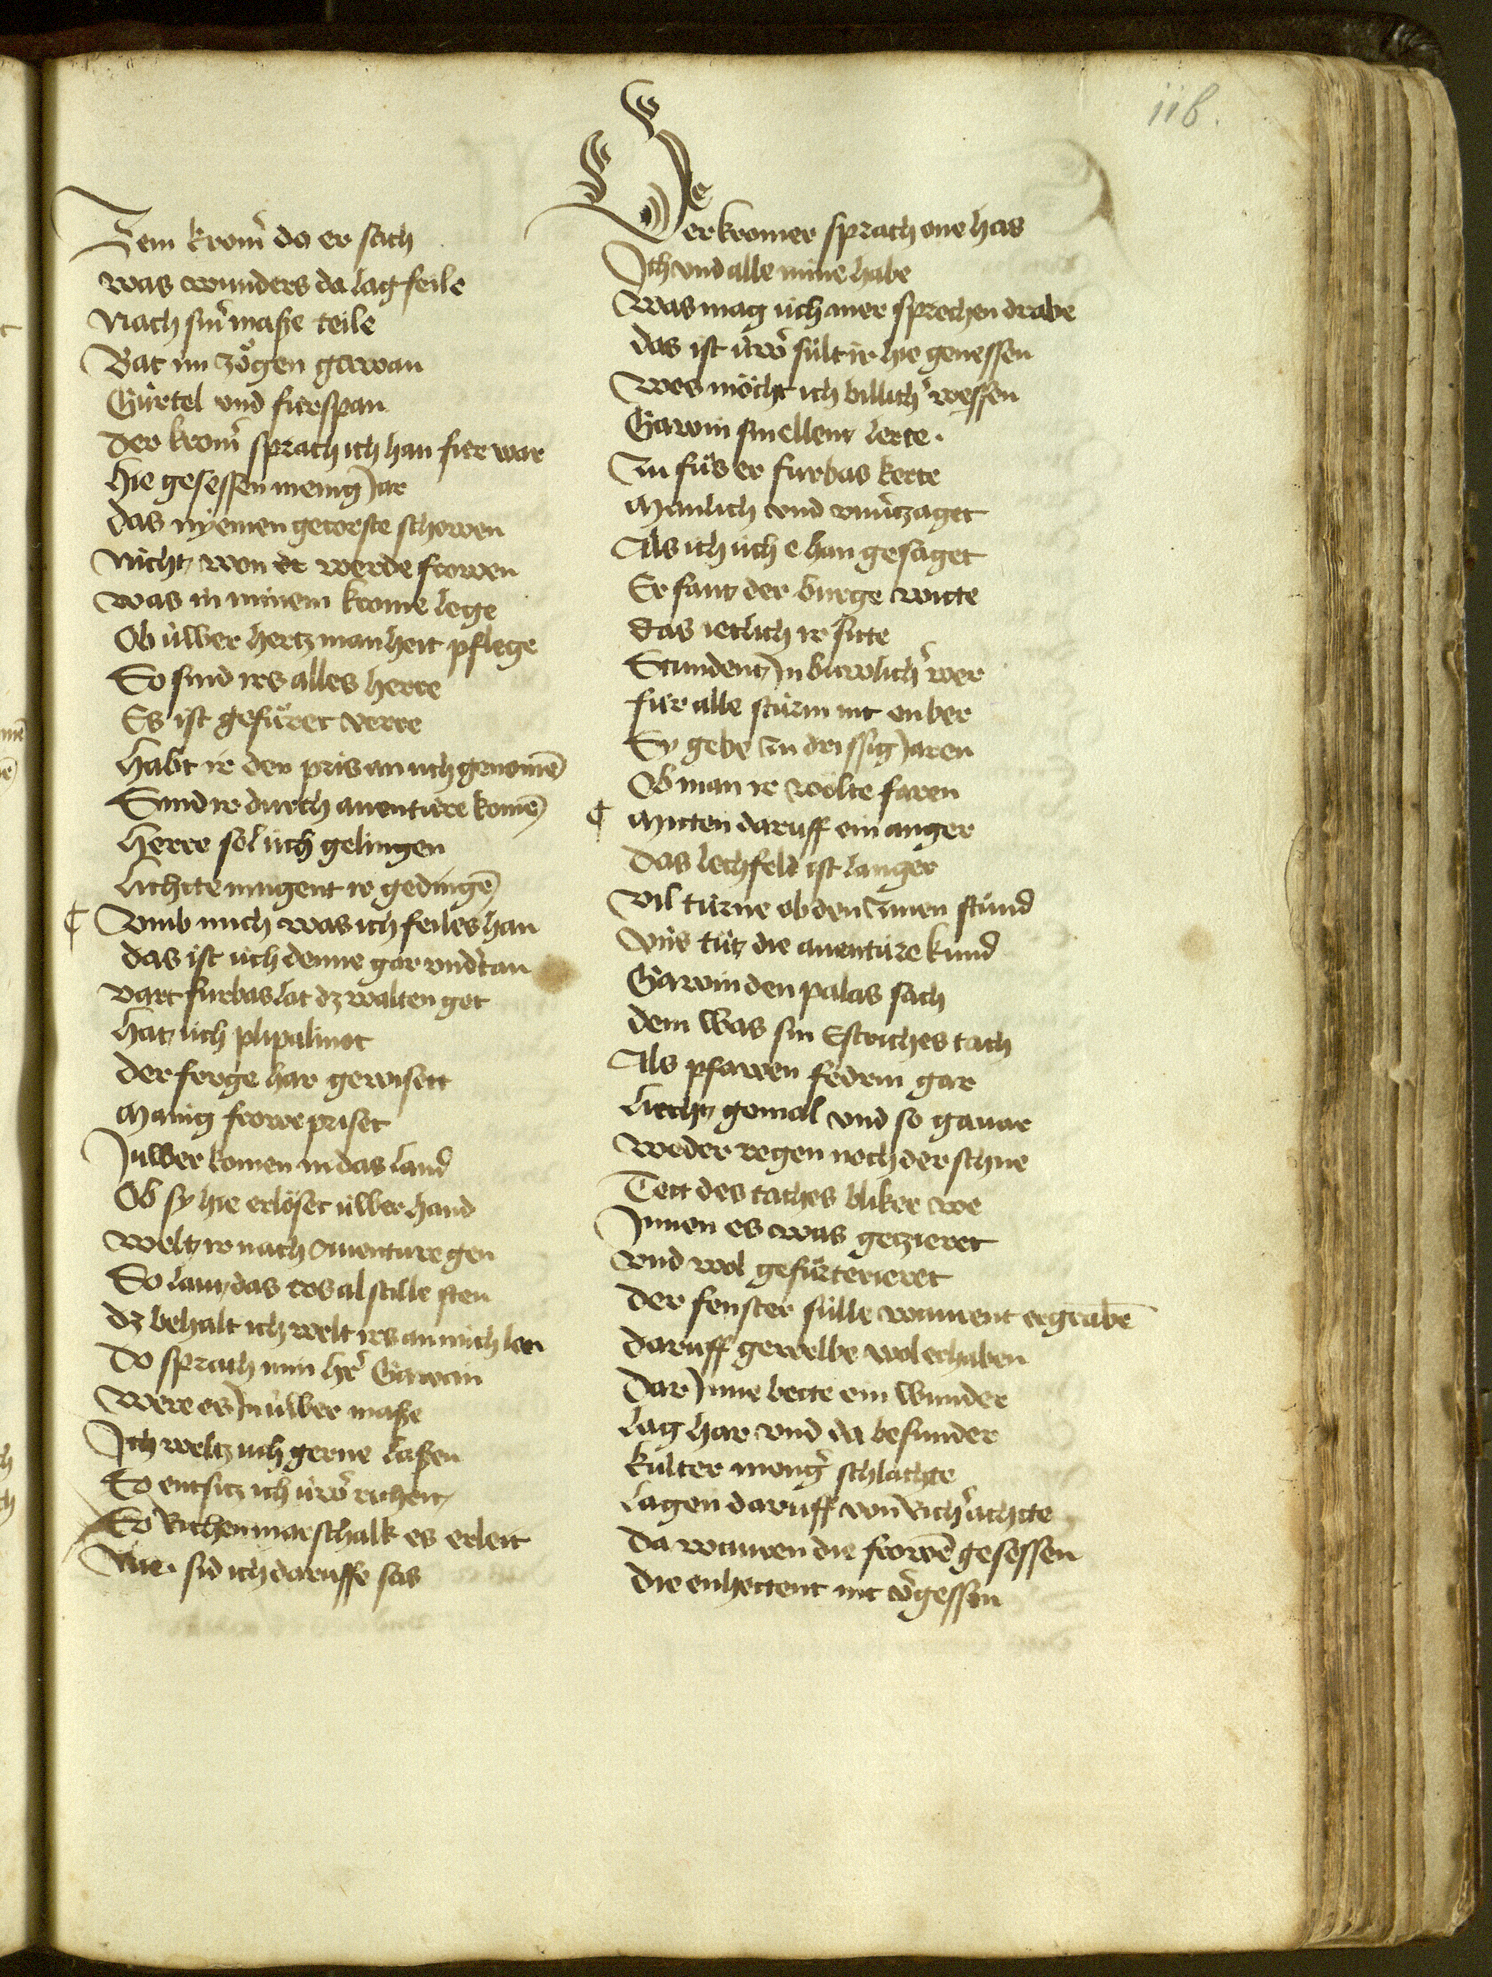 116.
Zem krom̄ da er sach
was wunders da lag feile
Nach sin̄ maße teile
Bat im zögen gawan
Gürtel vnd fürspan
der krom̄ sprach ich han fürwar
hie gesessen menig Jar
das nyemen getorste schowen
Nicht, won er werde frowen
was in minem krome lege
Ob üwer hertz manheit pflege
So sind irs alles herre
Es ist gefüret verre
habt ir den pris an üch genomē
Sind ir durch auenture komē
herre sol üch gelingen
lichtte mugent ir gedingē
¶ Vmb mich was ich feiles han
das ist üch denne gar vnd̄tan
vart fürbas lat dz walten got
hatz üch plipalinot
der ferge har gewisett
Manig frowe priset
Jüwer komen in das land
Ob sy hie erlöset üwer hand
weltz ir nach Ouenture gen
So lantz das ros al stille sten
dz behalt ich welt irs an mich len
Do sprach min hr̄ Gawan
were es Jn üwer maße
Jch weltz üch gerne laßen
So entsitz ich üwr̄ richeit
So Richen marschalk es erleit
Nie sid ich daruffe sas
Der kromer sprach one has
Jch vnd alle mine habe
was mag üch mer sprechen drabe
das ist üwr̄ sült ir hie genessen
wes möcht ich billich̄ wessen
Gawin sin ellent lerte
Zu füs er fürbas kerte
Manlich vnd vnu̅tzaget
Als ich üch e han gesaget
Er fantz der burge witte
das ietlich ir sitte
Stundentz Jn buwlich̄ wer
für alle stürm nit en ber
Sy gebe Zu drissig Jaren
Ob man ir wölte faren
¶ Mitten daruff ein anger
das lechfeld ist langer
vil türne ob den Zinnen stünd
vns tütz die auenture kund
Gawin den palas sach
dem was sin Estriches tach
Als pfawen fedrin gar
liechtz gemal vnd so gauar
weder regen noch der schne
Tett des taches bliker we
Jnnen es was getzieret
vnd wol gefürterieret
der fenster sülle warent ergrabē
daruff gewelbe wol erhaben
dar Jnne bette ein wunder
lag har vnd da besunder
kulter meng̅ schlachte
lagen daruff von Rich̄ achtte
da waren die frowē gesessen
die enhettent nit v̄gessen